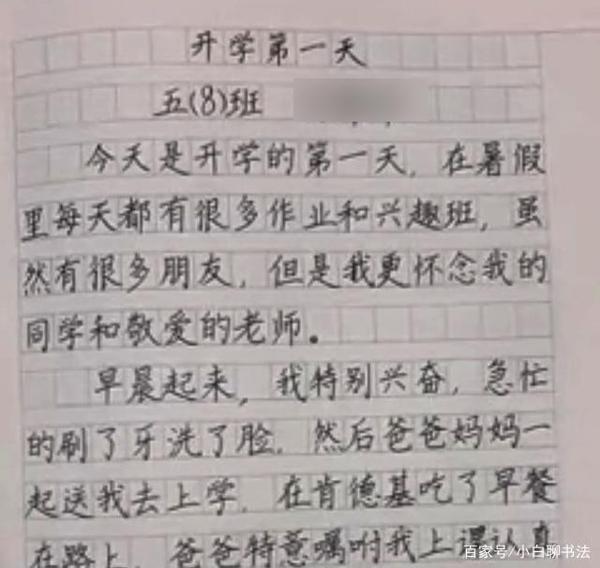 升学第一天
五(8)班
今天是升学的第一天，在暑假
里每天都有很多作业和兴趣班，虽
然有很多朋友，但是我更怀念我的
同学和敬爱的老师。
早晨起来，我特别兴奋，急忙
的刷了牙洗了脸，然后爸爸妈妈一
起送我去上学，在肯德基吃了早餐
在路上，爸爸特意嘱咐我上课认真
百家号/小白聊书法